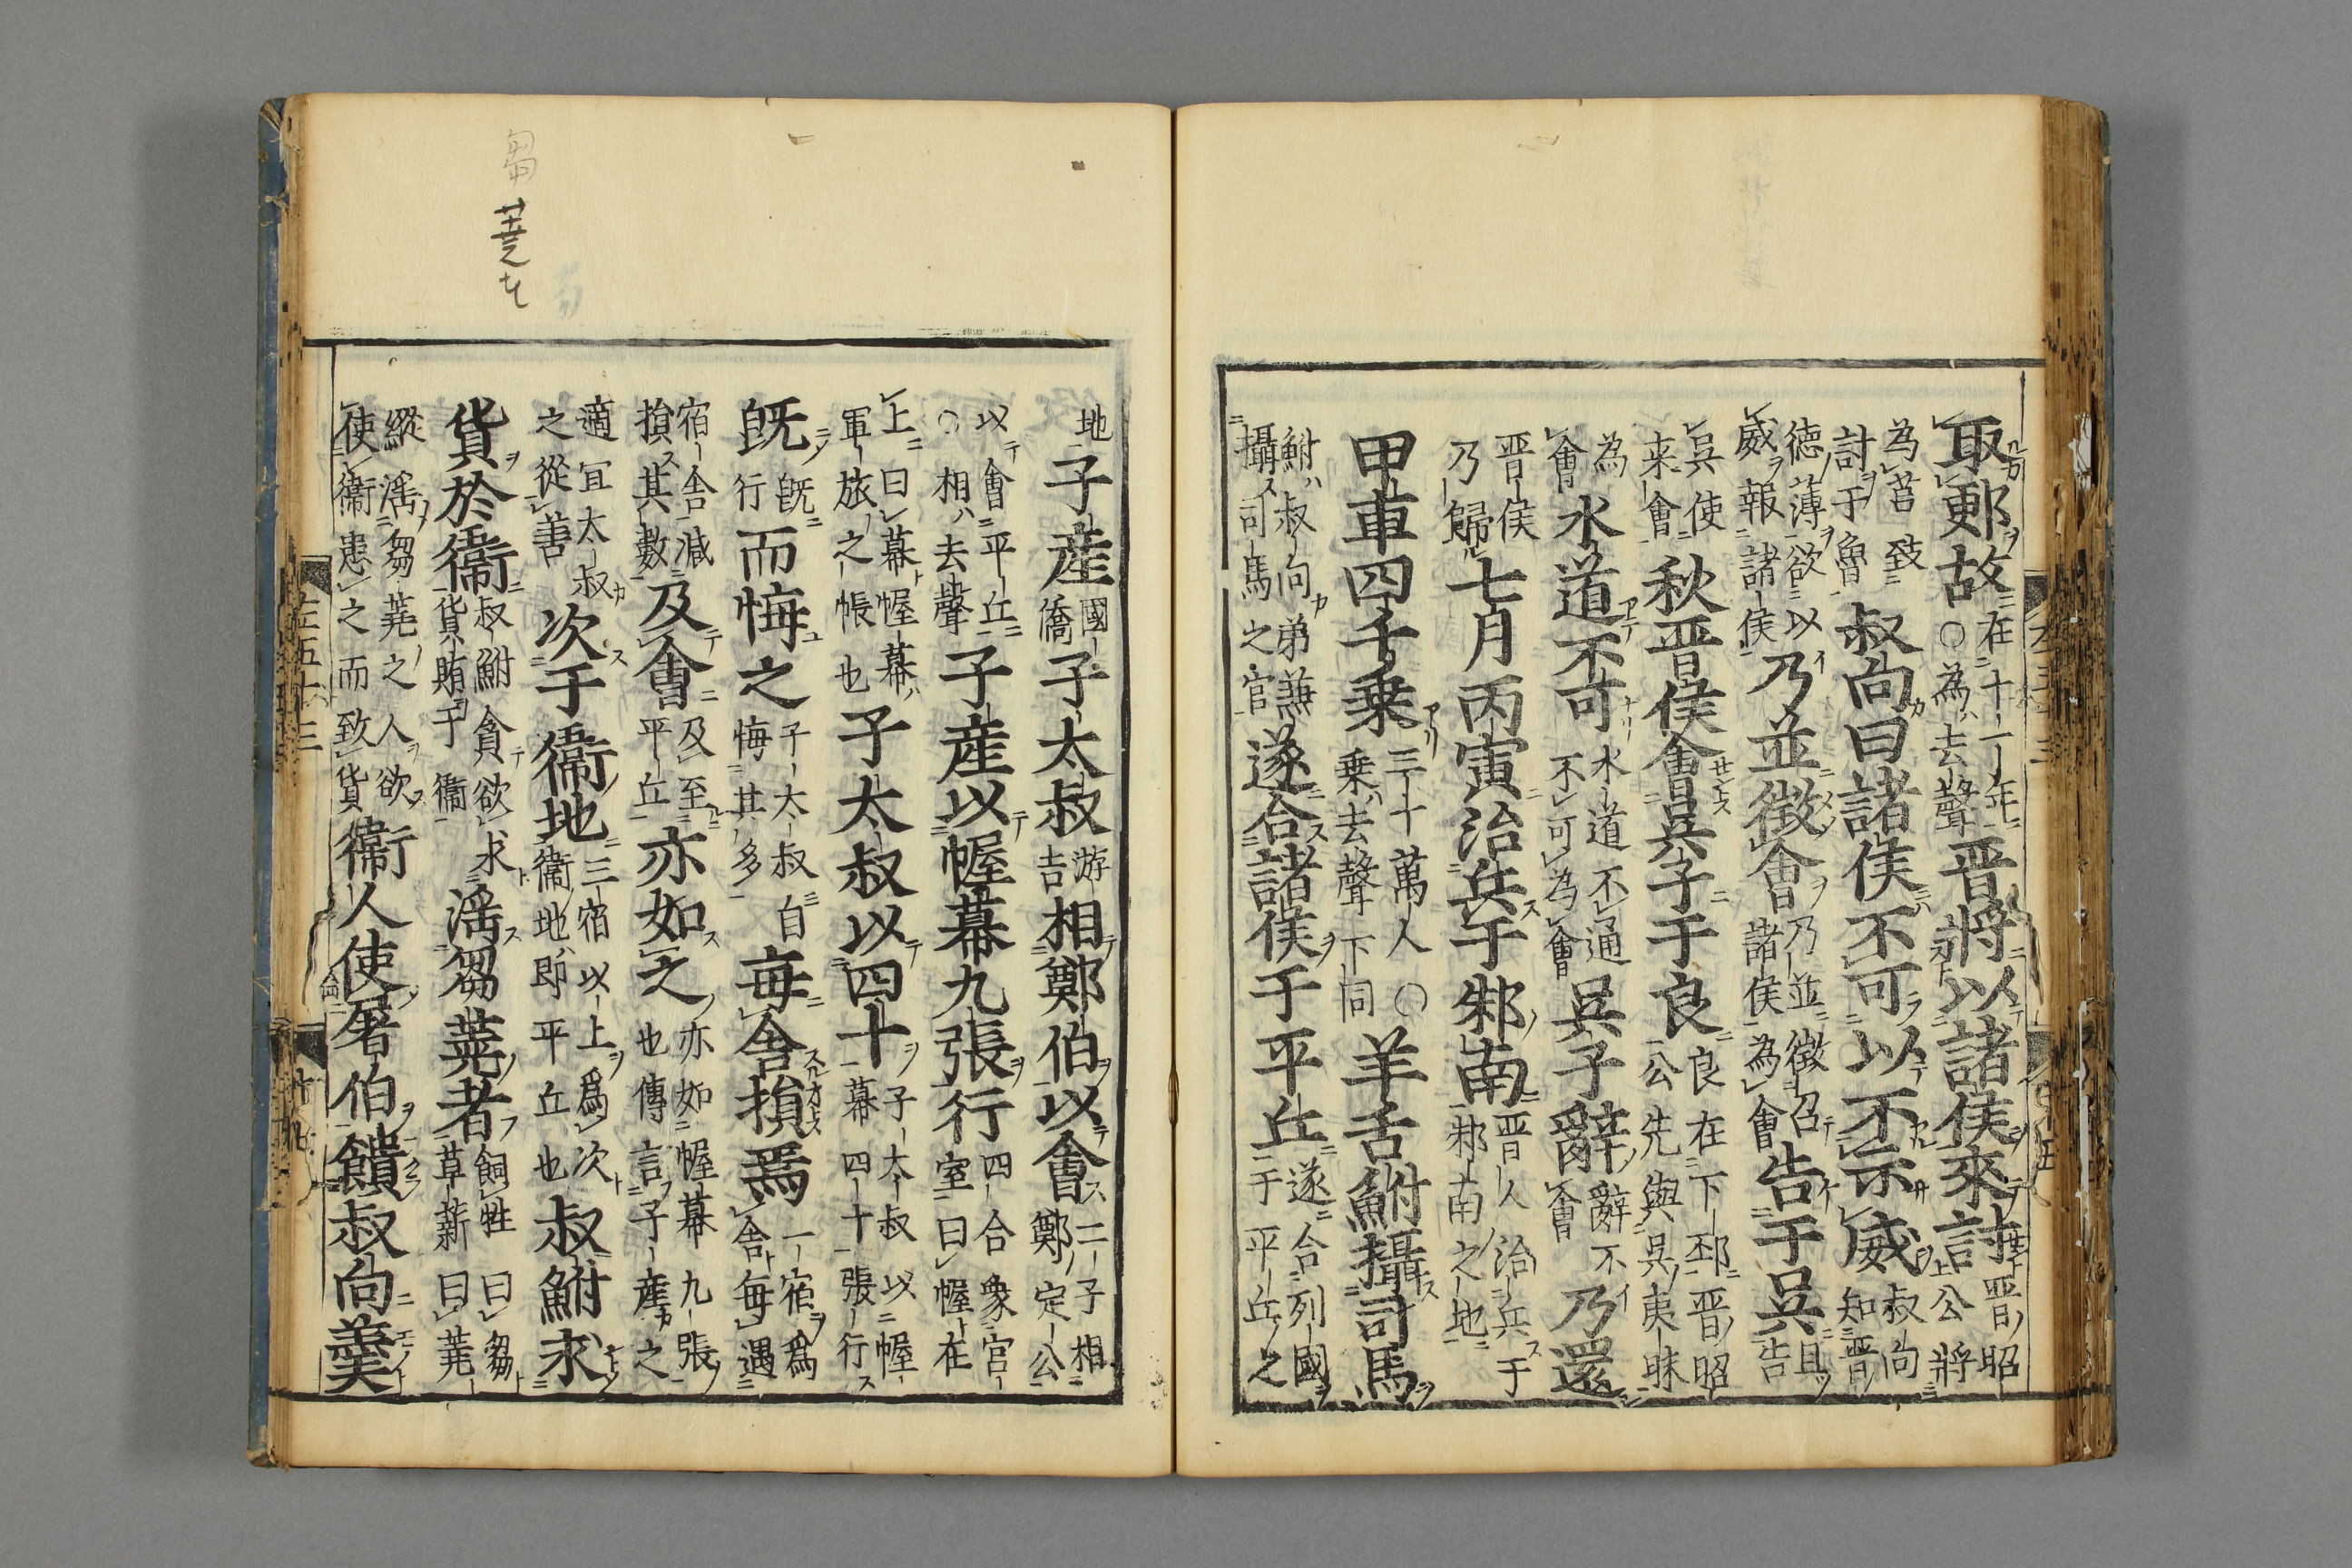 取郠故在十一年〇為去聲晋將以諸侯來討晋昭公將
為莒致討于魯叔向曰諸侯不可以不示威叔向知晋
徳薄欲以威報諸侯乃並徵會乃並徵召諸侯為會告于呉且告
呉使来會秋晋侯會呉子于良良在下邳晋昭公先與呉夷昧
為會水道不可水道不通不可為會呉子辭辭不會乃還
晋侯乃歸七月丙寅治兵于邾南晋人治兵于邾南之地
甲車四千乗三十萬人〇乗去聲下同羊舌鮒攝司馬
鮒叔向弟兼攝司馬之官遂合諸侯于平丘遂合列國于平丘之
地子産國僑子太叔游吉相鄭伯以會二子相鄭定公
以會平丘〇相去聲子産以幄幕九張行四合衆宮室曰幄在
上曰幕幄幕軍旅之帳也子太叔以四十子太叔以幄幕四十張行
既既行而悔之子太叔自悔其多毎舎損焉一宿爲舎毎遇
宿舎減損其數及會及至平丘亦如之亦如幄幕九張也傳言子産之
適冝太叔之從善次于衞地三宿以上爲次衞地即平丘也叔鮒求
貨於衞叔鮒貪欲求貨賄于衞淫芻蕘者飼牲曰芻草薪曰蕘
縱淫芻蕘之人欲使衞患之而致貨衞人使屠伯饋叔向羮
芻蕘
左五十三